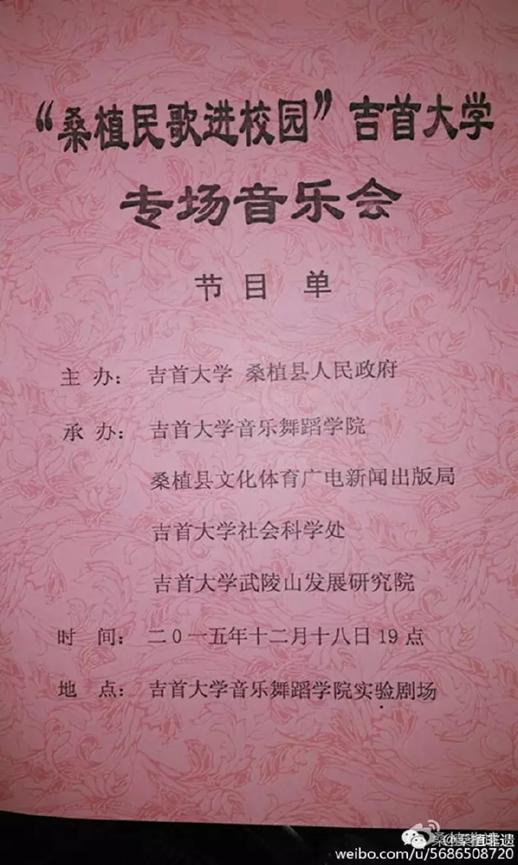 “桑植民歌进校园”吉首大学
专场音乐会
节目单
主 办： 吉首大学 桑植县人民政府
承 办： 吉首大学音乐舞蹈学院
桑植县文化体育广电新闻出版局
吉首大学社会科学处
吉首大学武陵山发展研究院
时 间： 二0一五年十二月十八日19点
地 点： 吉首大学音乐舞蹈学院实验剧场
@桑植非遗
weibo.com/u/5686508720